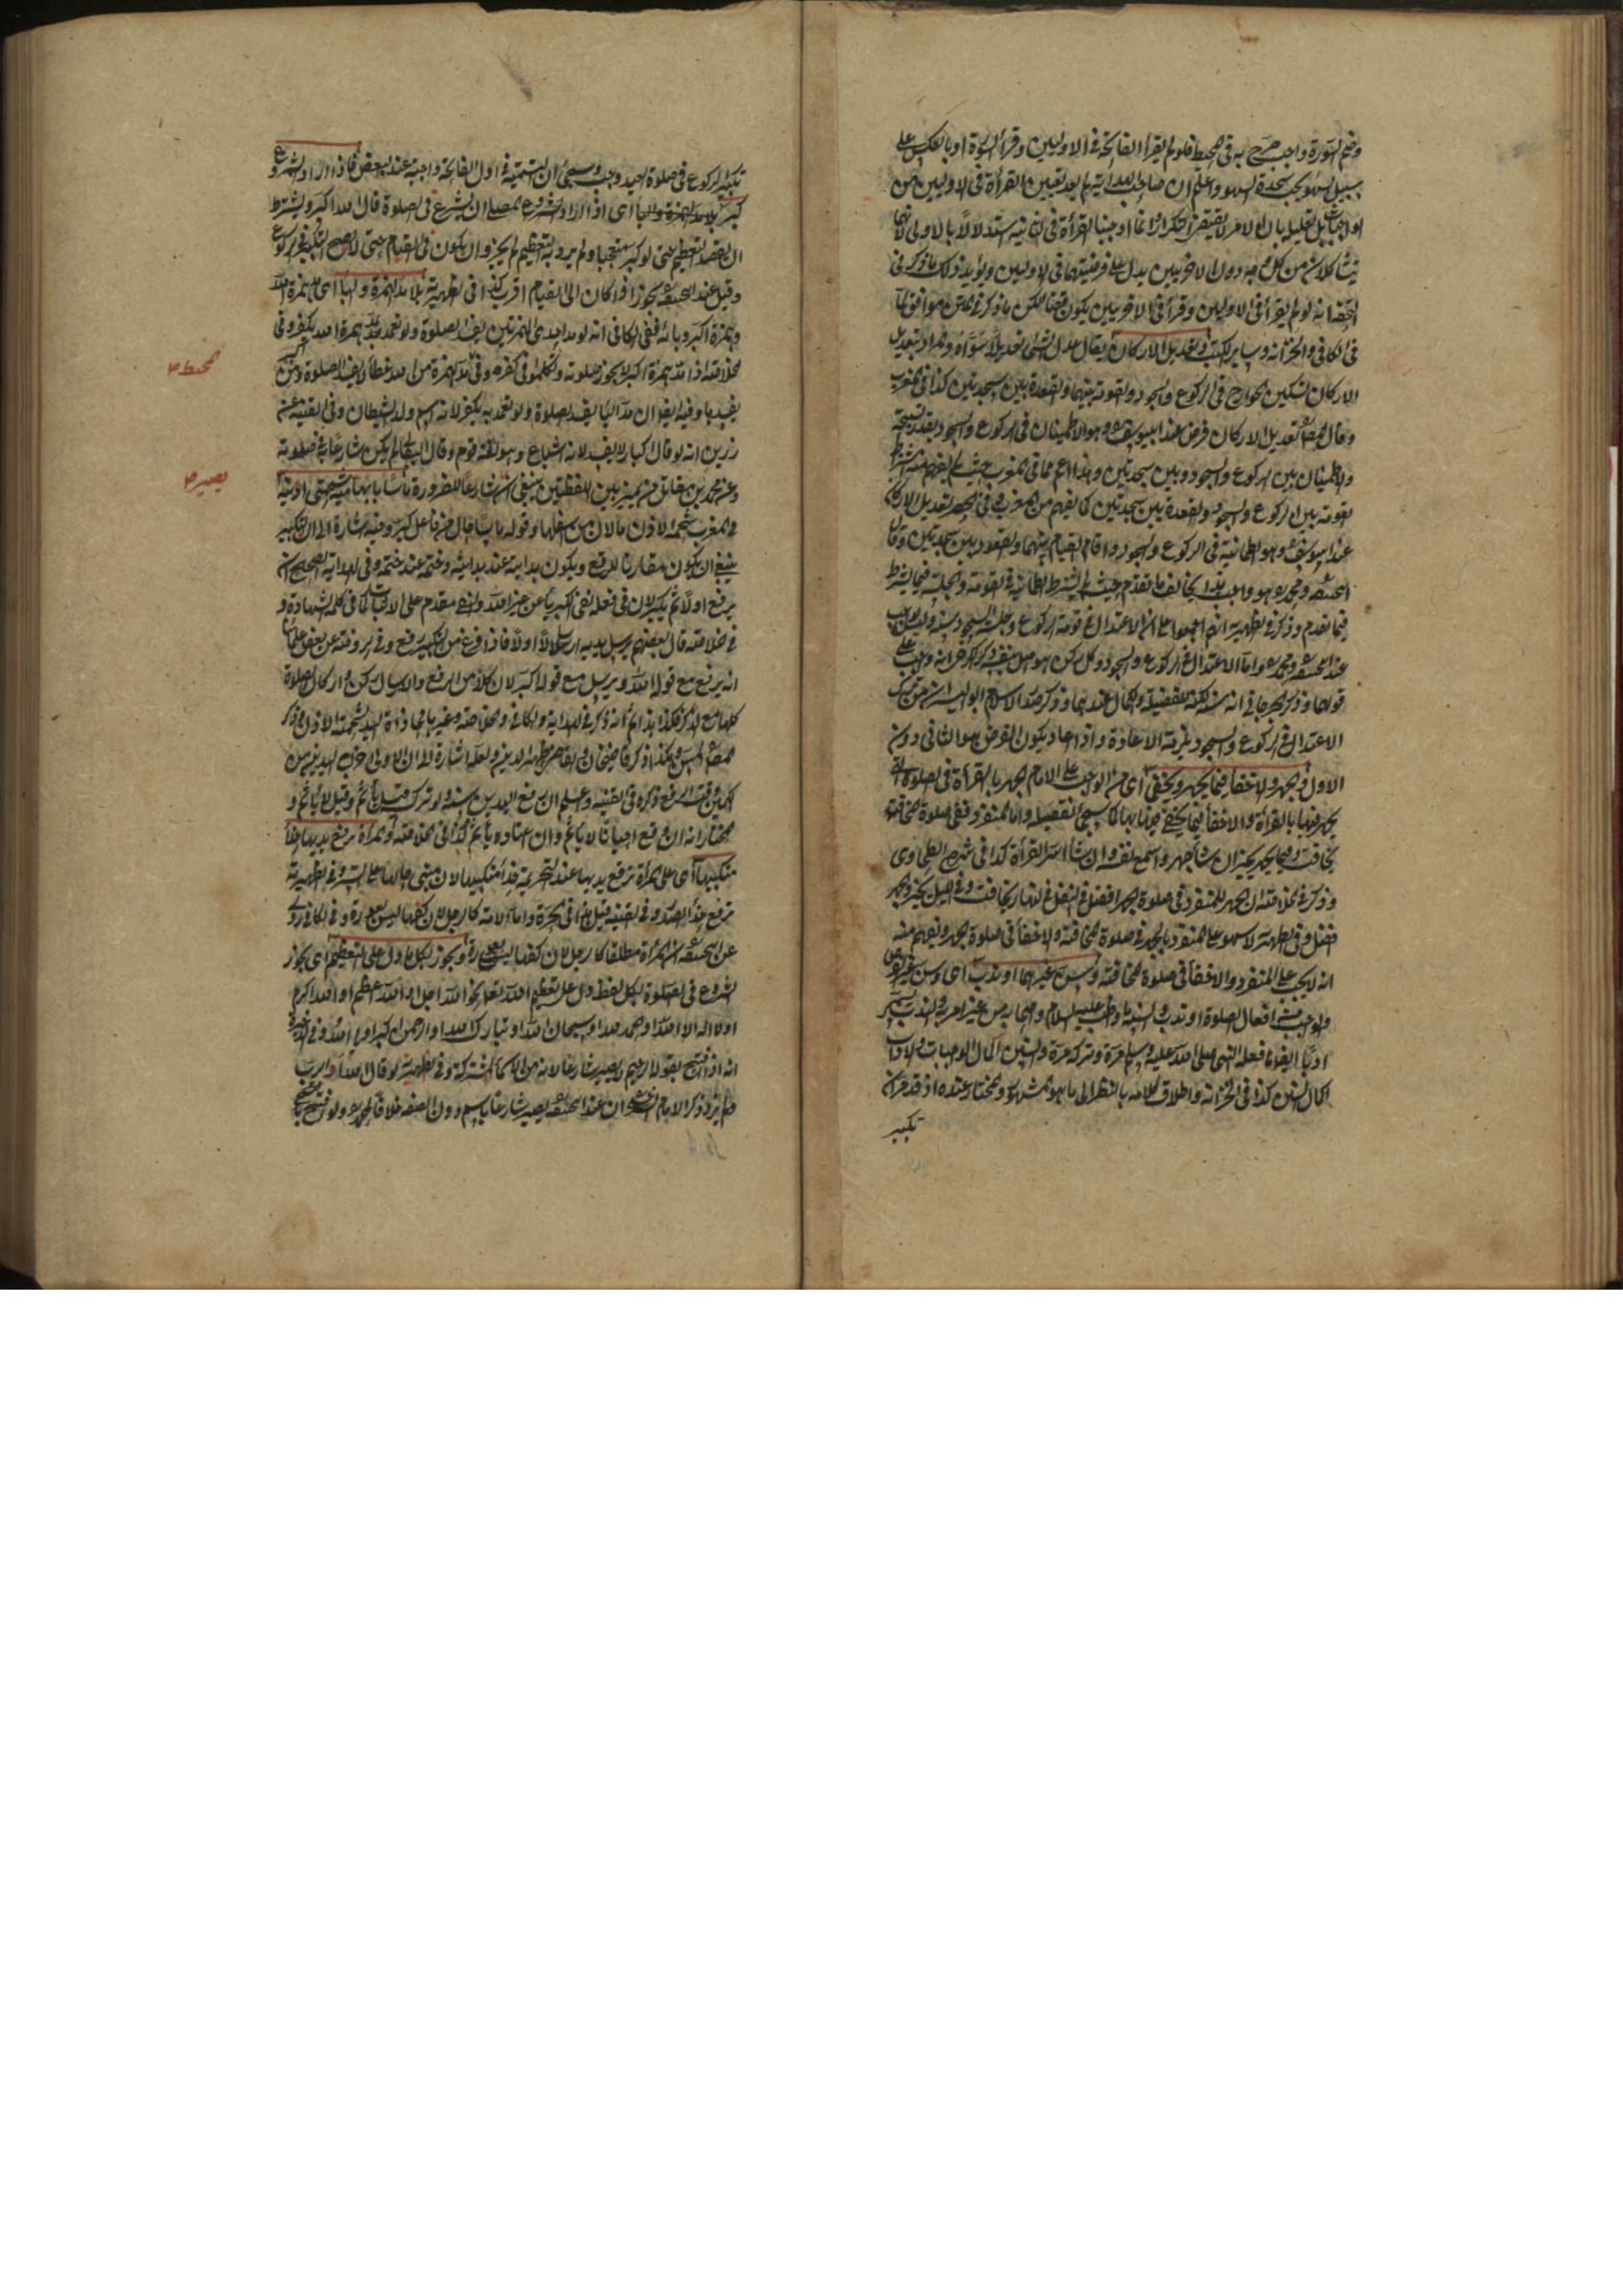 وضم السورة واجب صرح به فى المحيط فلو لم يقرأ الفاتحة فى الاوليين وقرأ السورة او بالعكس على
سبيل السهو يجب سجدة السهو واعلم ان صاحب الهداية لم يعد تعيين القراءة فى الاوليين من
الواجبات بل تعليله بان الامر لا يقتضى التكرار وانما اوجبنا القراءة فى الثانية استدلالا بالاولى لانهما
يتشاكلان من كل وجه دون الاخريين يدل على فرضيتها فى الاوليين ويؤيد ذلك ما ذكر فى
انه لو لم يقرأ فى الاوليين وقرأ فى الاخريين يكون قضاء لكن ما ذكر فى المتن موافق لما
فى الكافى والخزانة وسائر الكتب وتعديل الاركان يقال عدل الشئ تعديلا سواه والمراد بتعديل
الاركان تسكين الجوارح فى الركوع والسجود والقومة بينهما والقعدة بين السجدتين كذا فى المغرب
وقال المصنف تعديل الاركان فرض عند ابى يوسف وهو الاطمينان فى الركوع والسجود بقدر تسبيحة
والاطمينان بين الركوع والسجود وبين السجدتين وهذا اعم مما فى المغرب حيث لم يفهم منه اشتراط
القومة بين الركوع والسجود والقعدة بين السجدتين كما يفهم من المغرب وفى تعديل الاركان
عند ابى يوسف وهو الطمانينة فى الركوع والسجود واتمام القيام بينهما والقعود بين السجدتين وقال
ابو حنيفة ومحمد هو واجب يخالف ما تقدم حيث لم يشترط الطمانينة فى القومة والجلسة فيما يشترط
فيما تقدم وذكر فى الظهيرية انهم اجمعوا على ان الاعتدال فى قومة الركوع وجلسة السجود سنة وليس بواجب
عند ابى حنيفة ومحمد واما الاعتدال فى الركوع والسجود وكل ركن هو اصل بنفسه
قولهما وذكر الجرجانى انه سنة عندهما وذكر صدر الاسلام ابو اليسر ان من ترك
الاعتدال فى الركوع والسجود يلزمه الاعادة واذا اعاد يكون الفرض هو الثانى دون
الاول والجهر والاخفاء فيما يجهر ويخفى اى من الواجب على الامام الجهر بالقراءة فى الصلوة التى
يجهر فيها بالقراءة والاخفاء فيما يخفى فيها بها كما سيجئ تفصيله واما المنفرد ففى صلوة المخافتة
يخافت وفيما يجهر يخير ان شاء جهر واسمع نفسه وان شاء اسر القراءة كذا فى شرح الطحاوى
وذكر فى الخلاصة ان الجهر للمنفرد فى صلوة الجهر افضل فى النفل فى النهار يخافت وفى الليل يخير والجهر
افضل وفى الظهيرية لا سهو على المنفرد بالجهر فى صلوة المخافتة والاخفاء فى صلوة الجهر ويفهم منه
انه لا يجب على المنفرد والاخفاء فى صلوة المخافتة وسن غيرهما او ندب اى وسن غير الفرض
والواجب من افعال الصلوة او ندب والسنة ما واظب عليه السلام واصحابه من غير امر به والندب
ادبا ايضا ما فعله النبى صلى الله عليه وسلم مرة وتركه مرة والسنن اكمال الواجبات والاداب
اكمال السنن كذا فى الخزانة واطلاق كلامه بالنظر الى ما هو المشهور والمختار عنده اذ قد مر ان
تكبير
تكبير الركوع فى صلوة العيد واجب وسيجئ ان التسمية فى اول الفاتحة واجبة عند البعض فاذا اراد الشروع
كبر بلا مد الهمزة والباء اى اذا اراد الشروع المصلى ان يشرع فى الصلوة قال الله اكبر ويشترط
ان يقصد التعظيم حتى لو كبر متعجبا ولم يرد به التعظيم لم يجز وان يكون فى القيام حتى لا يصح التكبير فى الركوع
وقيل عند ابى حنيفة يجوز اذا كان الى القيام اقرب كذا فى الظهيرية بلا مد الهمزة والباء اى همزة الله
وهمزة اكبر وبائه ففى الكافى انه لو مد احدى الهمزتين يفسد الصلوة ولو تعمد بمد همزة الله يكفر وفى
الخلاصة اذا مد همزة اكبر لا يجوز صلوته وتكلموا فى كفره وفى مد الهمزة من الله خطأ لا يفسد الصلوة
يفسدها وفيه ايضا ان مد الباء يفسد الصلوة ولو تعمد به يكفر لانه اسم ولد الشيطان وفى القنية عن
زرين انه لو قال اكبار لا يفسد لانه اشباع وهو لغة قوم وقال البقالى لم يكن شارعا فى صلوته
وعن محمد بن مقاتل من لم يميز بين اللفظتين ينبغى ان يكون شارعا للضرورة ماسا بابهاميه شحمتى اذنيه
فى المغرب شحمة الاذن ما لان من اسفلها وقوله ماسا حال من فاعل كبر وفيه اشارة الى ان التكبير
ينبغى ان يكون مقارنا للرفع ويكون بدايته عند بدايته وختمه عند ختمه وفى الهداية الصحيح ان
يرفع اولا ثم يكبر لان فى فعله نفى الكبرياء عن غير الله والنفى مقدم على الاثبات كما فى كلمة الشهادة و
فى خلاصته قال بعضهم يرسل يديه ارسالا اولا فاذا فرغ من التكبير رفع وفى رواية عن بعض علمائنا
انه يرفع مع قوله الله ويرسل مع قوله اكبر لان كلا من الرفع والارسال ركن واركان الصلوة
كلها مع الذكر فكذا هذا ثم انه ذكر فى الهداية والكافى والخلاصة وغيرها محاذاة اليد لشحمة الاذن وذكر
المصنف المس وهكذا ذكر قاضيخان والقاضى ظهير الدين ولعله اشارة الى ان الاولى اخراج اليدين من
الكمين وقت الرفع ذكره فى القنية وعلم ان رفع اليدين سنة ولو ترك قيل يأثم وقيل لا يأثم و
المختار انه ان رفع احيانا لا يأثم وان اعتاده يأثم كذا فى الخلاصة والمرأة ترفع يديها حذاء
منكبيها اى على المرأة ترفع يديها عند التحريمة حذاء منكبيها لان مبنى حالها على الستر وفى الظهيرية
ترفع حذاء الصدر وفى القنية قيل هذا فى الحرة واما الامة كالرجل لان كفها ليس بعورة وفى الكافى روى
عن ابى حنيفة ان المرأة مطلقا كالرجل لان كفها ليس بعورة ويجوز بكل ما دل على التعظيم اى يجوز
الشروع فى الصلوة بكل لفظ دل على تعظيم الله تعالى نحو الله اجل او الله اعظم او الله اكرم
او لا اله الا الله او الحمد لله او سبحان الله او تبارك الله او الرحمن اكبر
انه اذا افتتح بقوله الرحيم لا يصير شارعا لانه من الاسماء المشتركة وفى الظهيرية لو قال الله او الرب
ولم يزد ذكر الامام ان عند ابى حنيفة يصير شارعا باسم دون الصفة خلافا لمحمد ولو افتتح
محيط
بصير